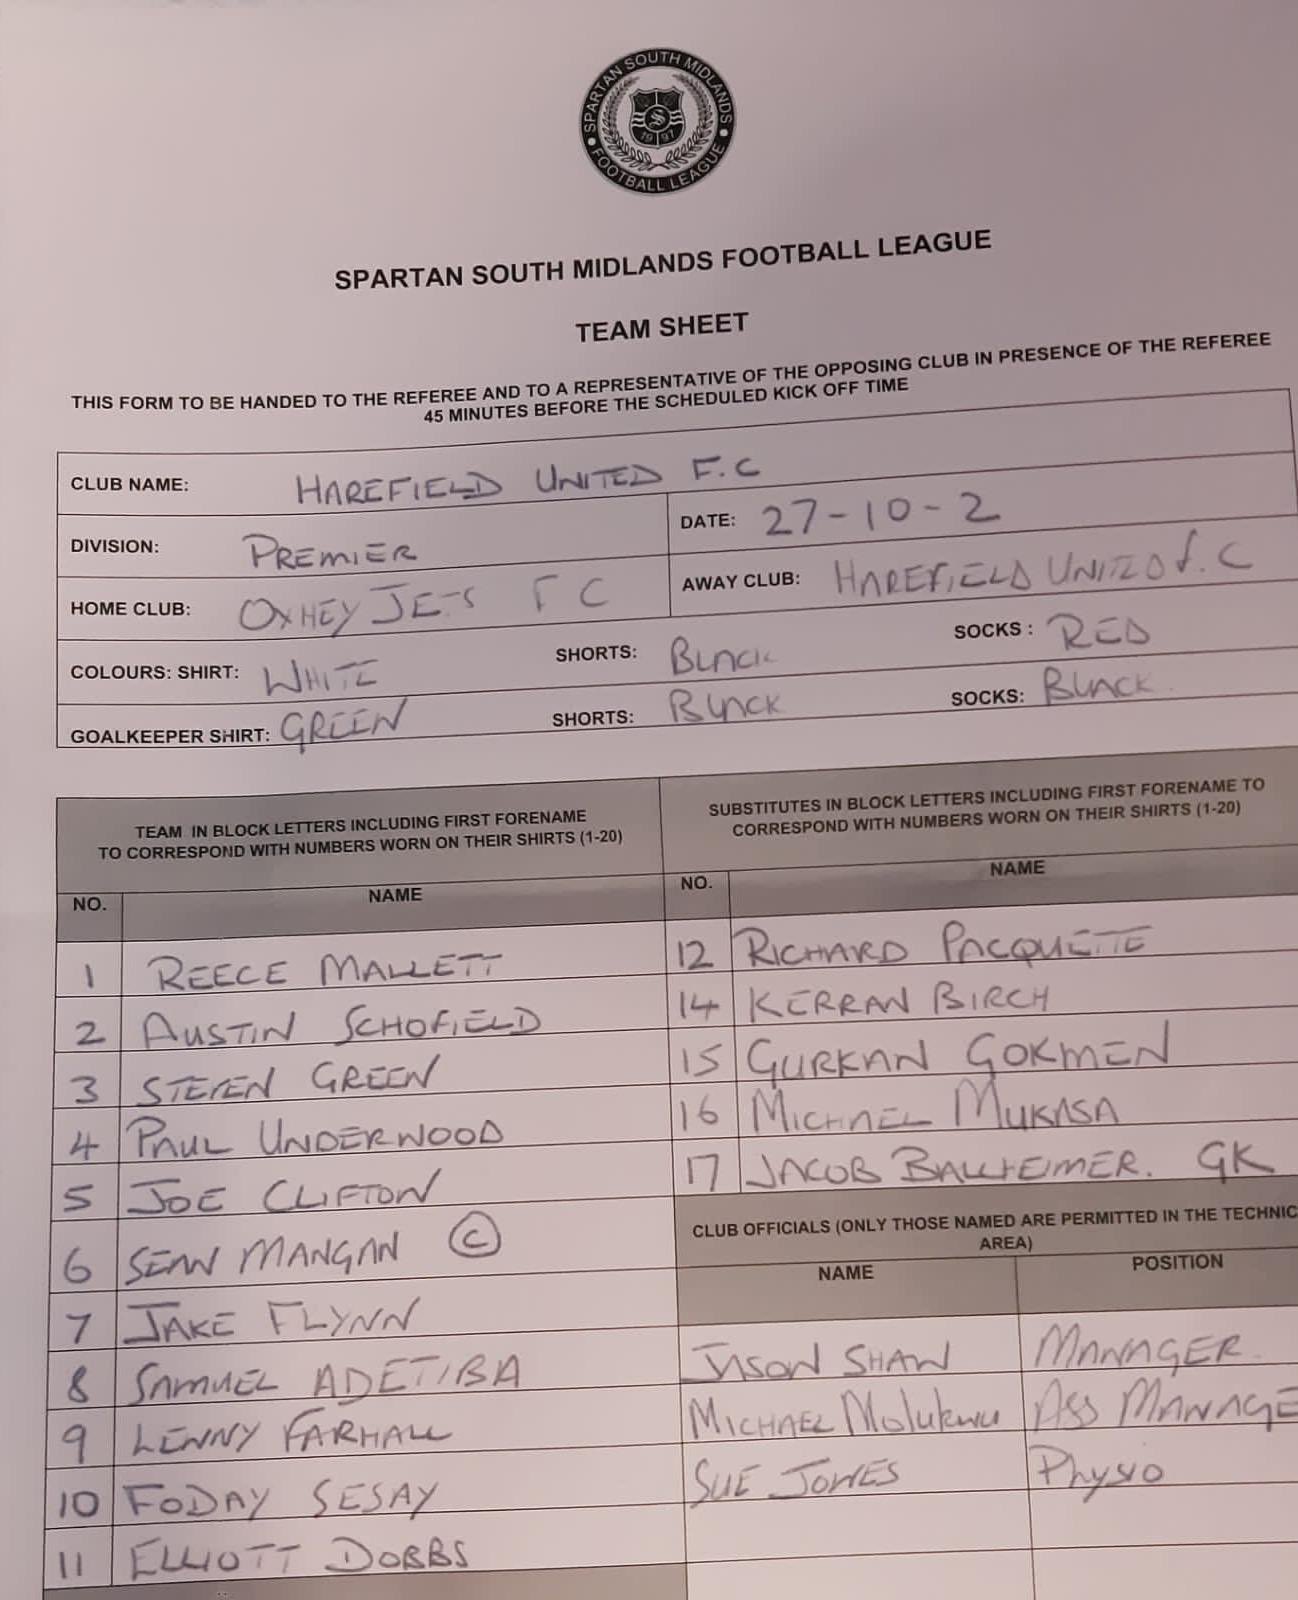 SPARTAN SOUTH MIDLANDS
FOOTBALL LEAGUE
S
19 97
SPARTAN SOUTH MIDLANDS FOOTBALL LEAGUE
TEAM SHEET
THIS FORM TO BE HANDED TO THE REFEREE AND TO A REPRESENTATIVE OF THE OPPOSING CLUB IN PRESENCE OF THE REFEREE
45 MINUTES BEFORE THE SCHEDULED KICK OFF TIME
CLUB NAME: HAREFIELD UNITED F.C
DIVISION: PREMIER DATE: 27-10-2
HOME CLUB: OXHEY JETS F C AWAY CLUB: HAREFIELD UNITED F.C
COLOURS: SHIRT: WHITE SHORTS: BLACK SOCKS : RED
GOALKEEPER SHIRT: GREEN SHORTS: BLACK SOCKS: BLACK
TEAM IN BLOCK LETTERS INCLUDING FIRST FORENAME
TO CORRESPOND WITH NUMBERS WORN ON THEIR SHIRTS (1-20)
NO. NAME
1 REECE MALLETT
2 AUSTIN SCHOFIELD
3 STEVEN GREEN
4 PAUL UNDERWOOD
5 JOE CLIFTON
6 SEAN MANGAN C
7 JAKE FLYNN
8 SAMUEL ADETIBA
9 LENNY FARHALL
10 FODAY SESAY
11 ELLIOTT DOBBS
SUBSTITUTES IN BLOCK LETTERS INCLUDING FIRST FORENAME TO
CORRESPOND WITH NUMBERS WORN ON THEIR SHIRTS (1-20)
NO. NAME
12 RICHARD PACQUETTE
14 KERRAN BIRCH
15 GURKAN GOKMEN
16 MICHAEL MUKASA
17 JACOB BALLHEIMER. GK
CLUB OFFICIALS (ONLY THOSE NAMED ARE PERMITTED IN THE TECHNIC
AREA)
NAME POSITION
JASON SHAW MANAGER.
MICHAEL Molukwu ASS MANAGE
SUE JONES Physio